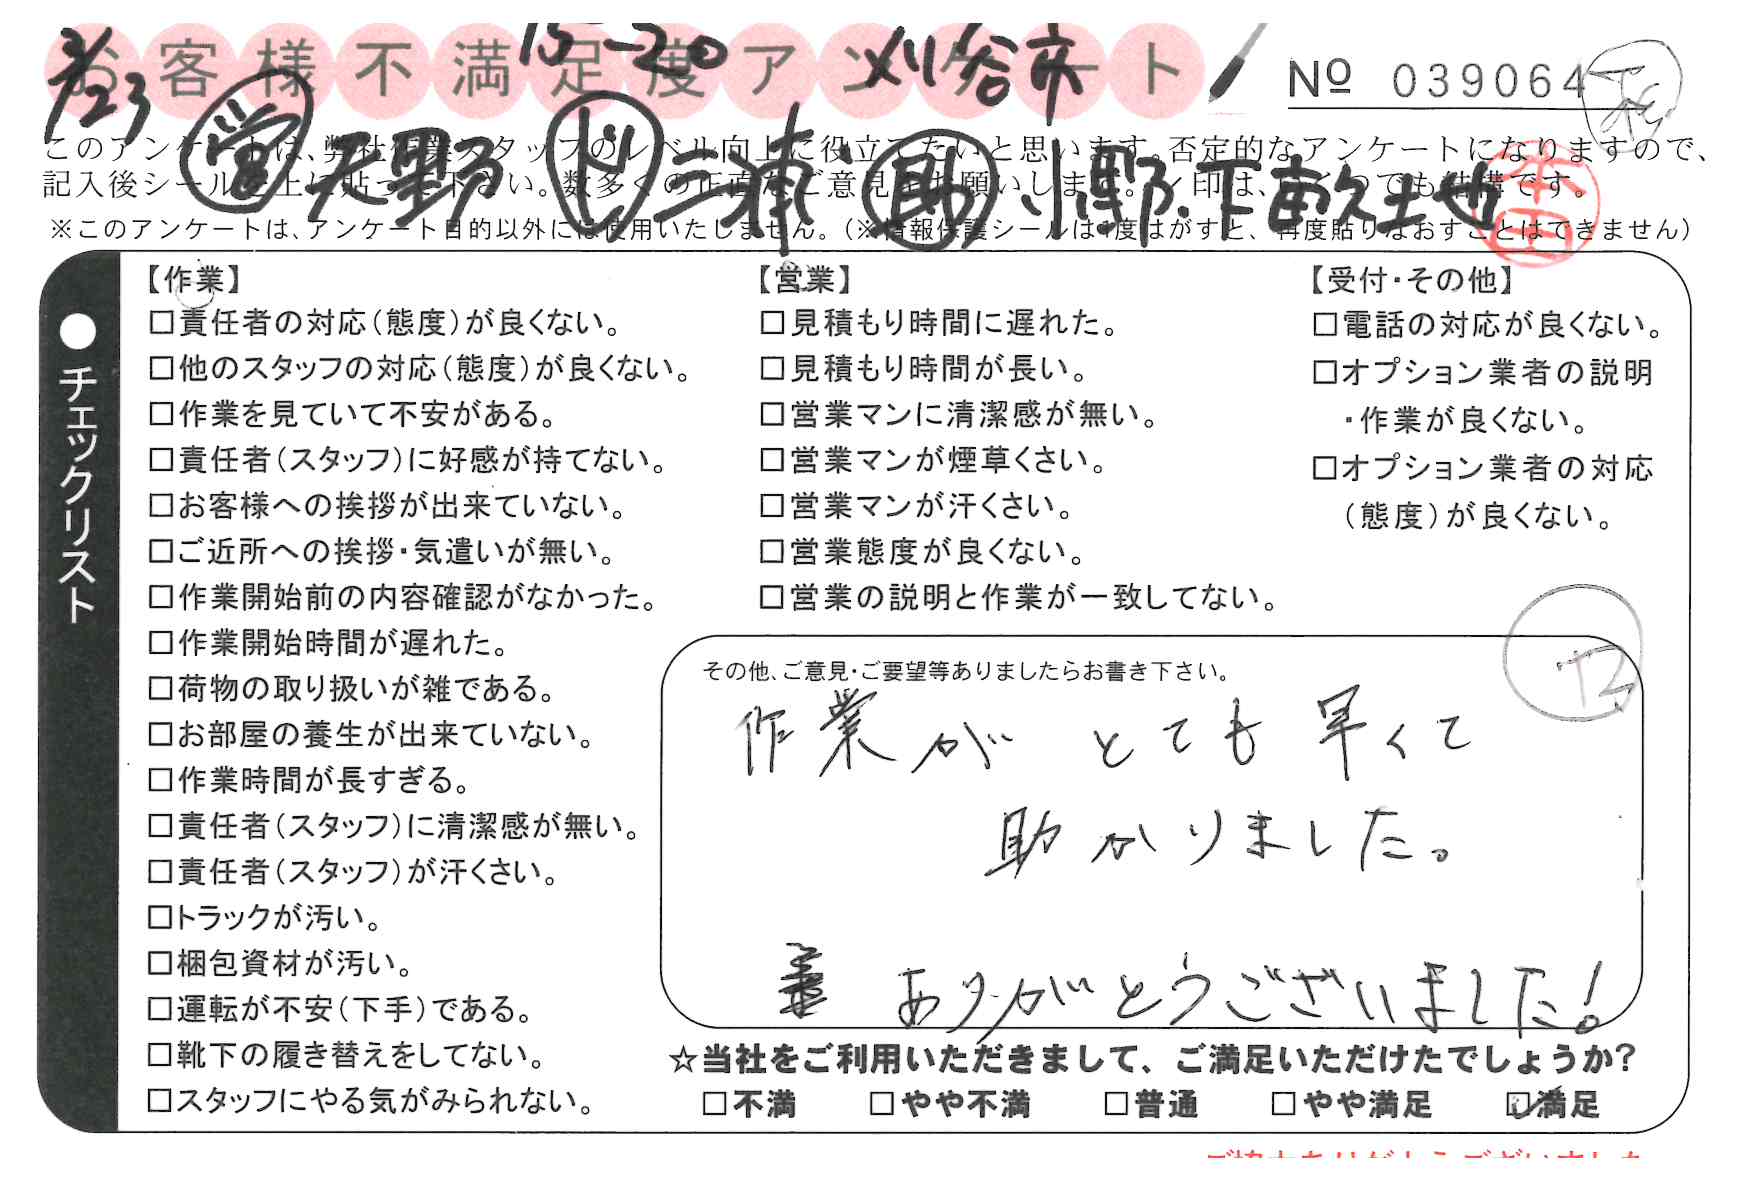 お客様不満足度アンケート
3/23 15-20 刈谷市
№ 039064
営 天野 ド 三浦 助 小野・下 南 久土也
本田
このアンケートは、弊社作業スタッフのレベル向上に役立てたいと思います。否定的なアンケートになりますので、
記入後シールを上に貼って下さい。数多くの正直なご意見をお願いします。✓印は、いくつでも結構です。
※このアンケートは、アンケート目的以外には使用いたしません。（※情報保護シールは1度はがすと、再度貼りなおすことはできません）
●チェックリスト
【作業】
□責任者の対応（態度）が良くない。
□他のスタッフの対応（態度）が良くない。
□作業を見ていて不安がある。
□責任者（スタッフ）に好感が持てない。
□お客様への挨拶が出来ていない。
□ご近所への挨拶・気遣いが無い。
□作業開始前の内容確認がなかった。
□作業開始時間が遅れた。
□荷物の取り扱いが雑である。
□お部屋の養生が出来ていない。
□作業時間が長すぎる。
□責任者（スタッフ）に清潔感が無い。
□責任者（スタッフ）が汗くさい。
□トラックが汚い。
□梱包資材が汚い。
□運転が不安（下手）である。
□靴下の履き替えをしてない。
□スタッフにやる気がみられない。
【営業】
□見積もり時間に遅れた。
□見積もり時間が長い。
□営業マンに清潔感が無い。
□営業マンが煙草くさい。
□営業マンが汗くさい。
□営業態度が良くない。
□営業の説明と作業が一致してない。
【受付・その他】
□電話の対応が良くない。
□オプション業者の説明
・作業が良くない。
□オプション業者の対応
（態度）が良くない。
その他、ご意見・ご要望等ありましたらお書き下さい。
作業が とても 早くて
助かりました。
ありがとうございました！
☆当社をご利用いただきまして、ご満足いただけたでしょうか？
□不満 □やや不満 □普通 □やや満足 ☑満足
ご協力ありがとうございました